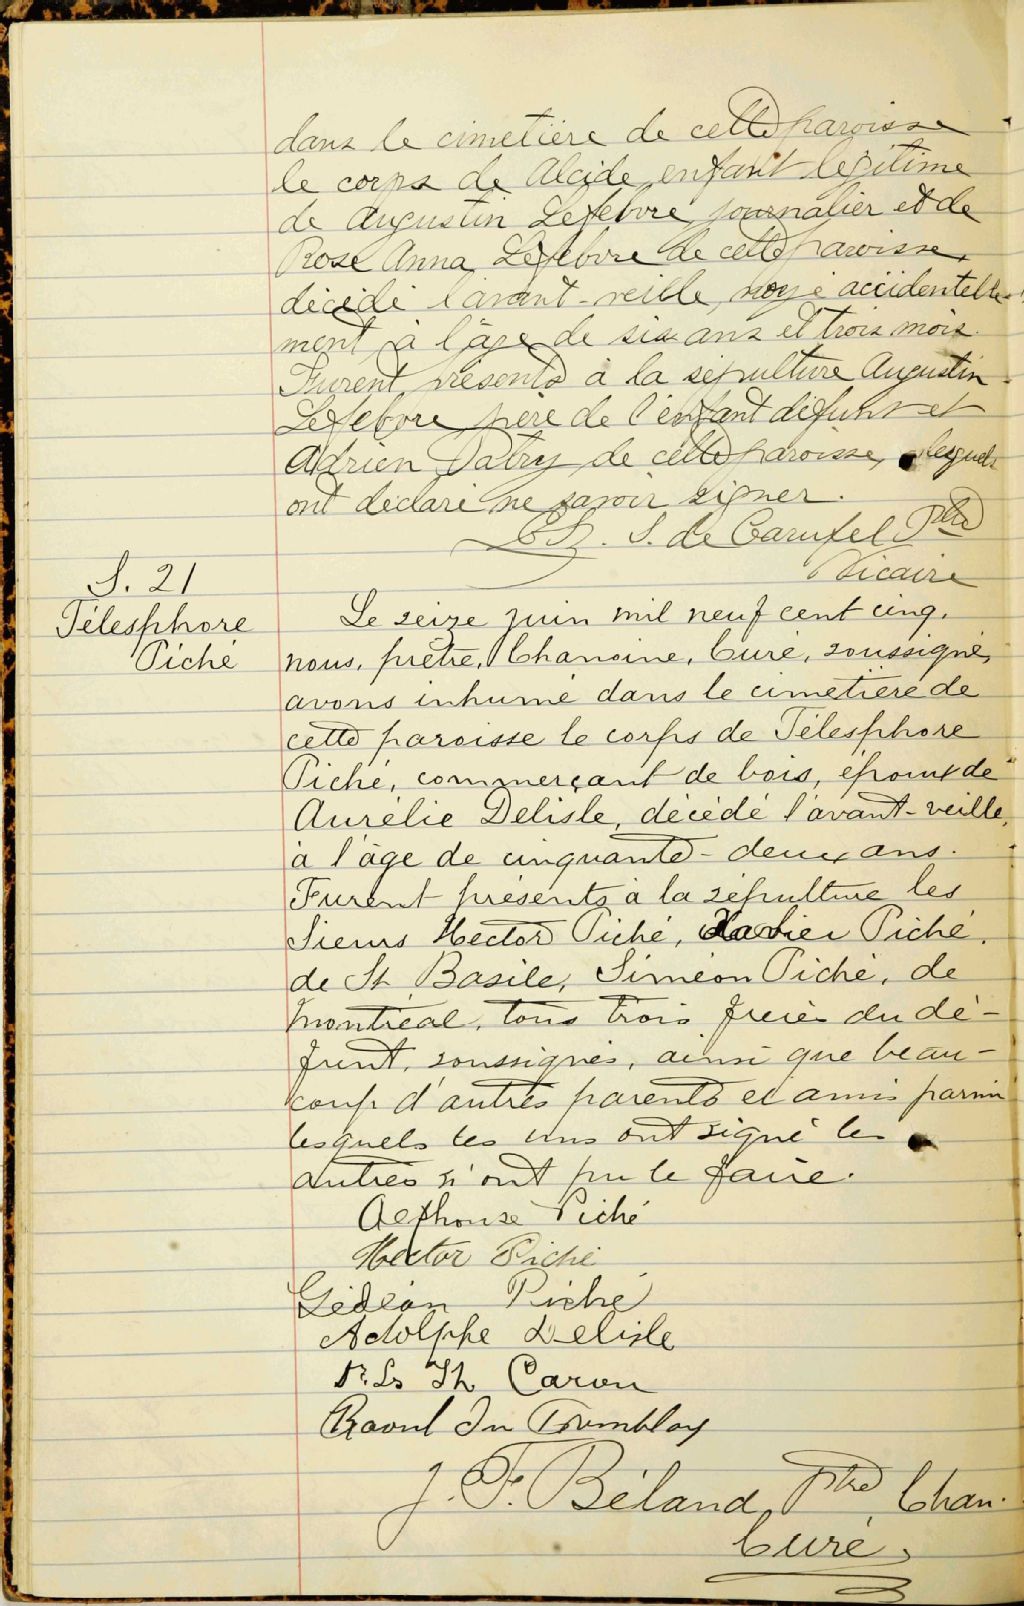 dans le cimetière de cette paroisse
le corps de Alcide enfant légitime
de Augustin Lefebvre, journalier et de
Rose Anna Lefebvre de cette paroisse,
décédé l'avant-veille, noyé accidentelle-
ment, à l'âge de six ans et trois mois.
Furent présents à la sépulture Augustin
Lefebvre père de l'enfant défunt et
Adrien Patry de cette paroisse, lesquels
ont déclaré ne savoir signer.
S. de Carufel Ptre
Vicaire
S. 21
Télesphore
Piché
Le seize juin mil neuf cent cinq,
nous, prêtre, Chanoine, Curé, soussigné,
avons inhumé dans le cimetière de
cette paroisse le corps de Télesphore
Piché, commerçant de bois, époux de
Aurélie Delisle, décédé l'avant-veille,
à l'âge de cinquante-deux ans.
Furent présents à la sépulture les
Sieurs Hector Piché, Xavier Piché,
de St Basile, Siméon Piché, de
Montréal, tous trois frères du dé-
funt, soussignés, ainsi que beau-
coup d'autres parents et amis parmi
lesquels les uns ont signé les
autres n'ont pu le faire.
Alphonse Piché
Hector Piché
Gédéon Piché
Adolphe Delisle
Th Caron
Raoul Tremblay
J. F. Béland, Ptre, Chan.
Curé,